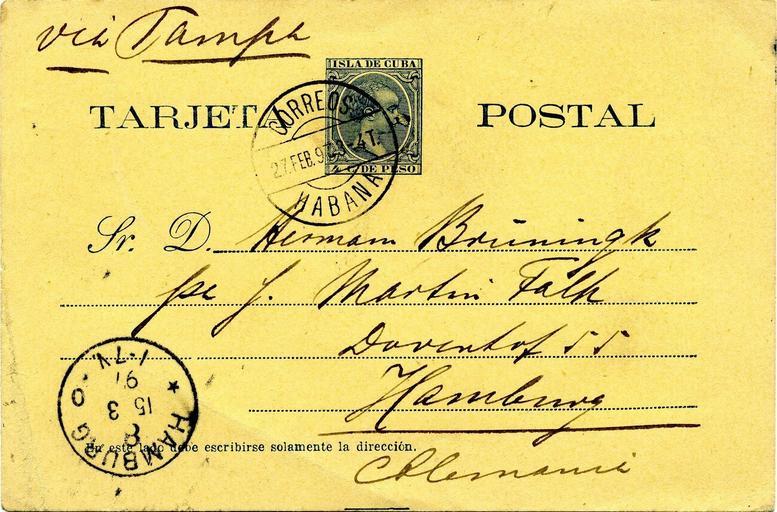 via Tampa
ISLA DE CUBA
TARJETA POSTAL
CORREOS
27.FEB.97
4T.
HABANA
4 C. DE PESO
Sr. D. Hermann Brüningk
pr J. Martin Falk
Dovenhof 55
Hamburg
1-7V
97
15 3
8
HAMBURG O.
En este lado debe escribirse solamente la dirección.
Alemania